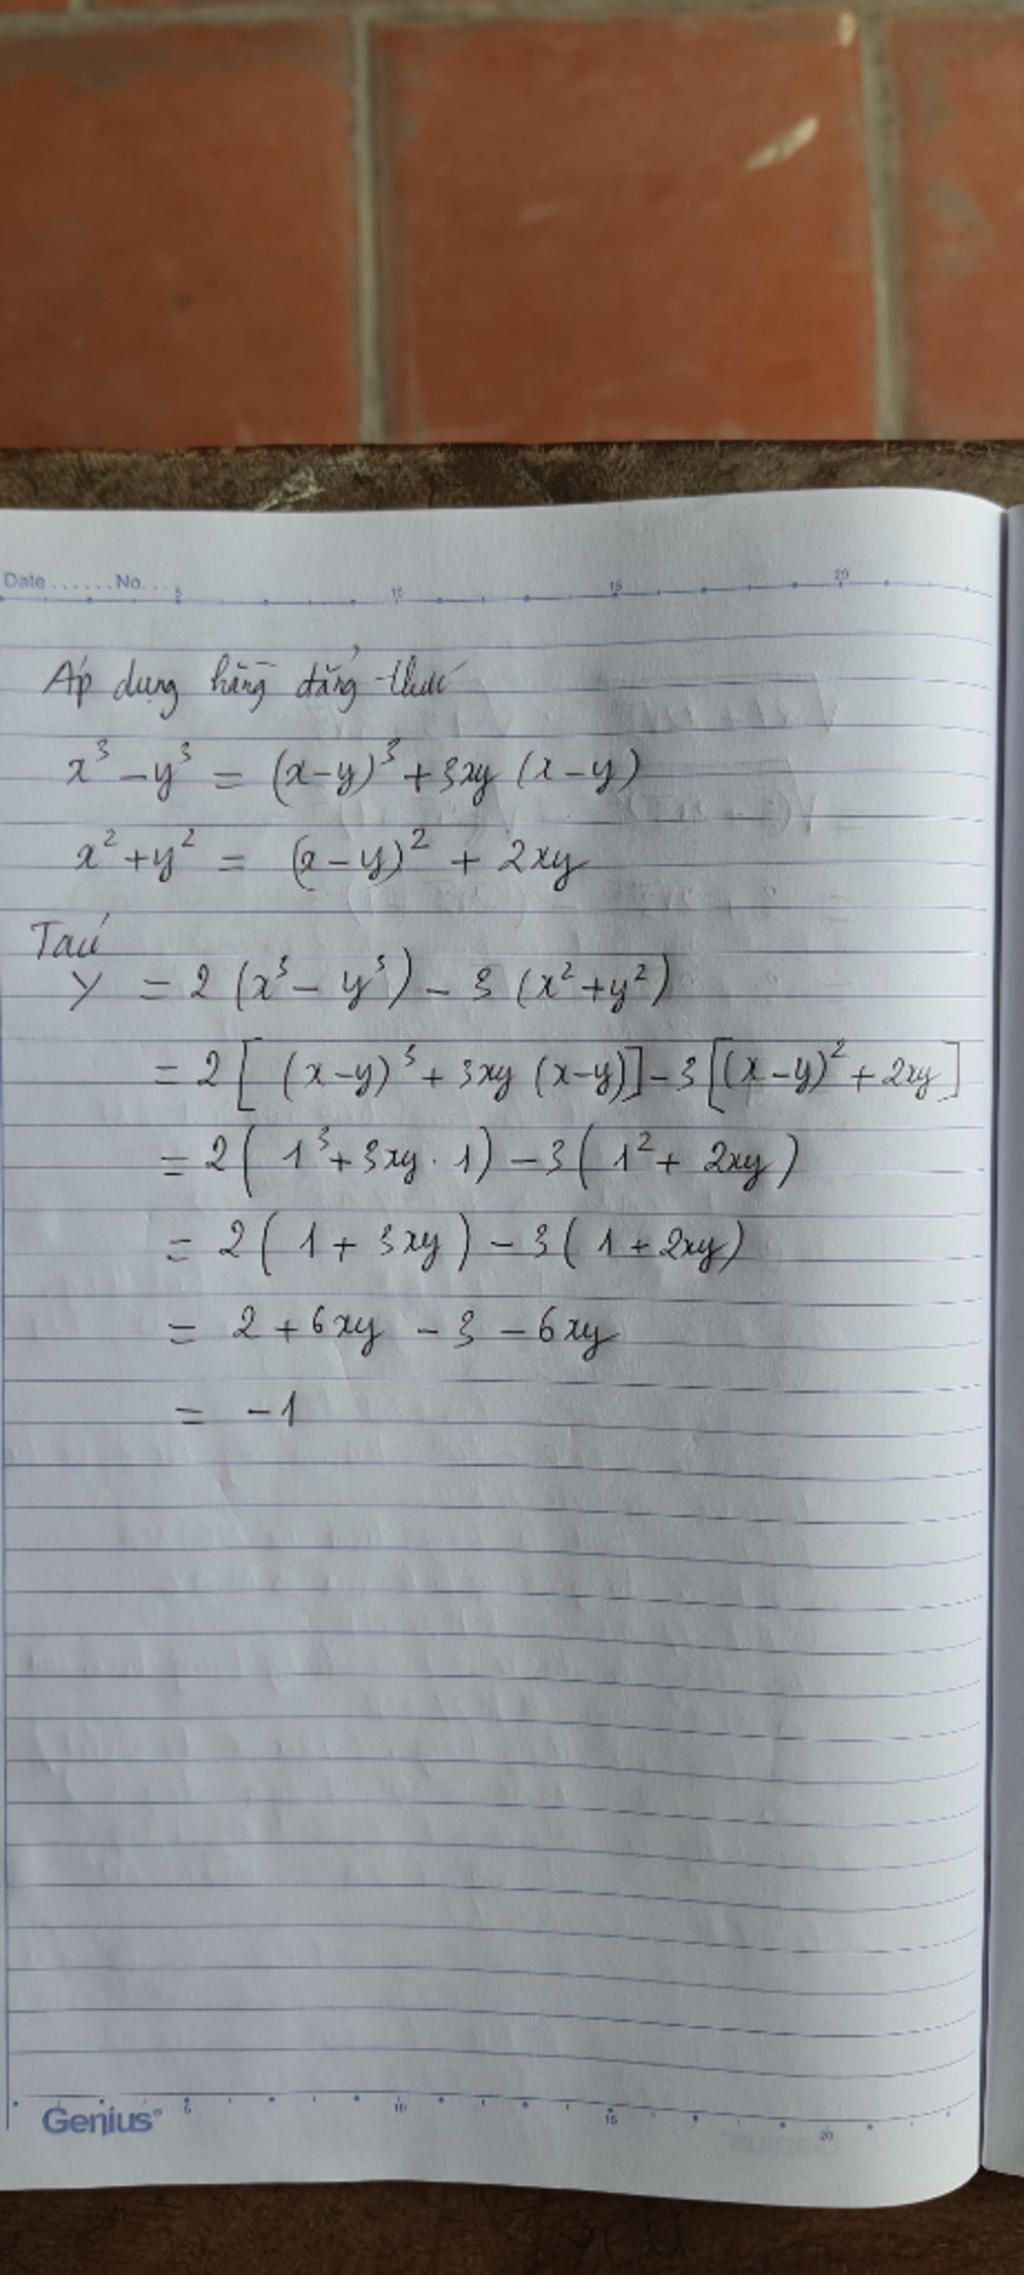 Date ...... No. ... 5 10 15 20
Áp dụng hằng đẳng thức
x³ - y³ = (x-y)³ + 3xy (x-y)
x² + y² = (x-y)² + 2xy
Ta có
Y = 2 (x³ - y³) - 3 (x² + y²)
= 2 [ (x-y)³ + 3xy (x-y)] - 3 [(x-y)² + 2xy]
= 2 ( 1³ + 3xy . 1) - 3 ( 1² + 2xy )
= 2 ( 1 + 3xy ) - 3 ( 1 + 2xy )
= 2 + 6xy - 3 - 6xy
= -1
Genius 5 10 15 20